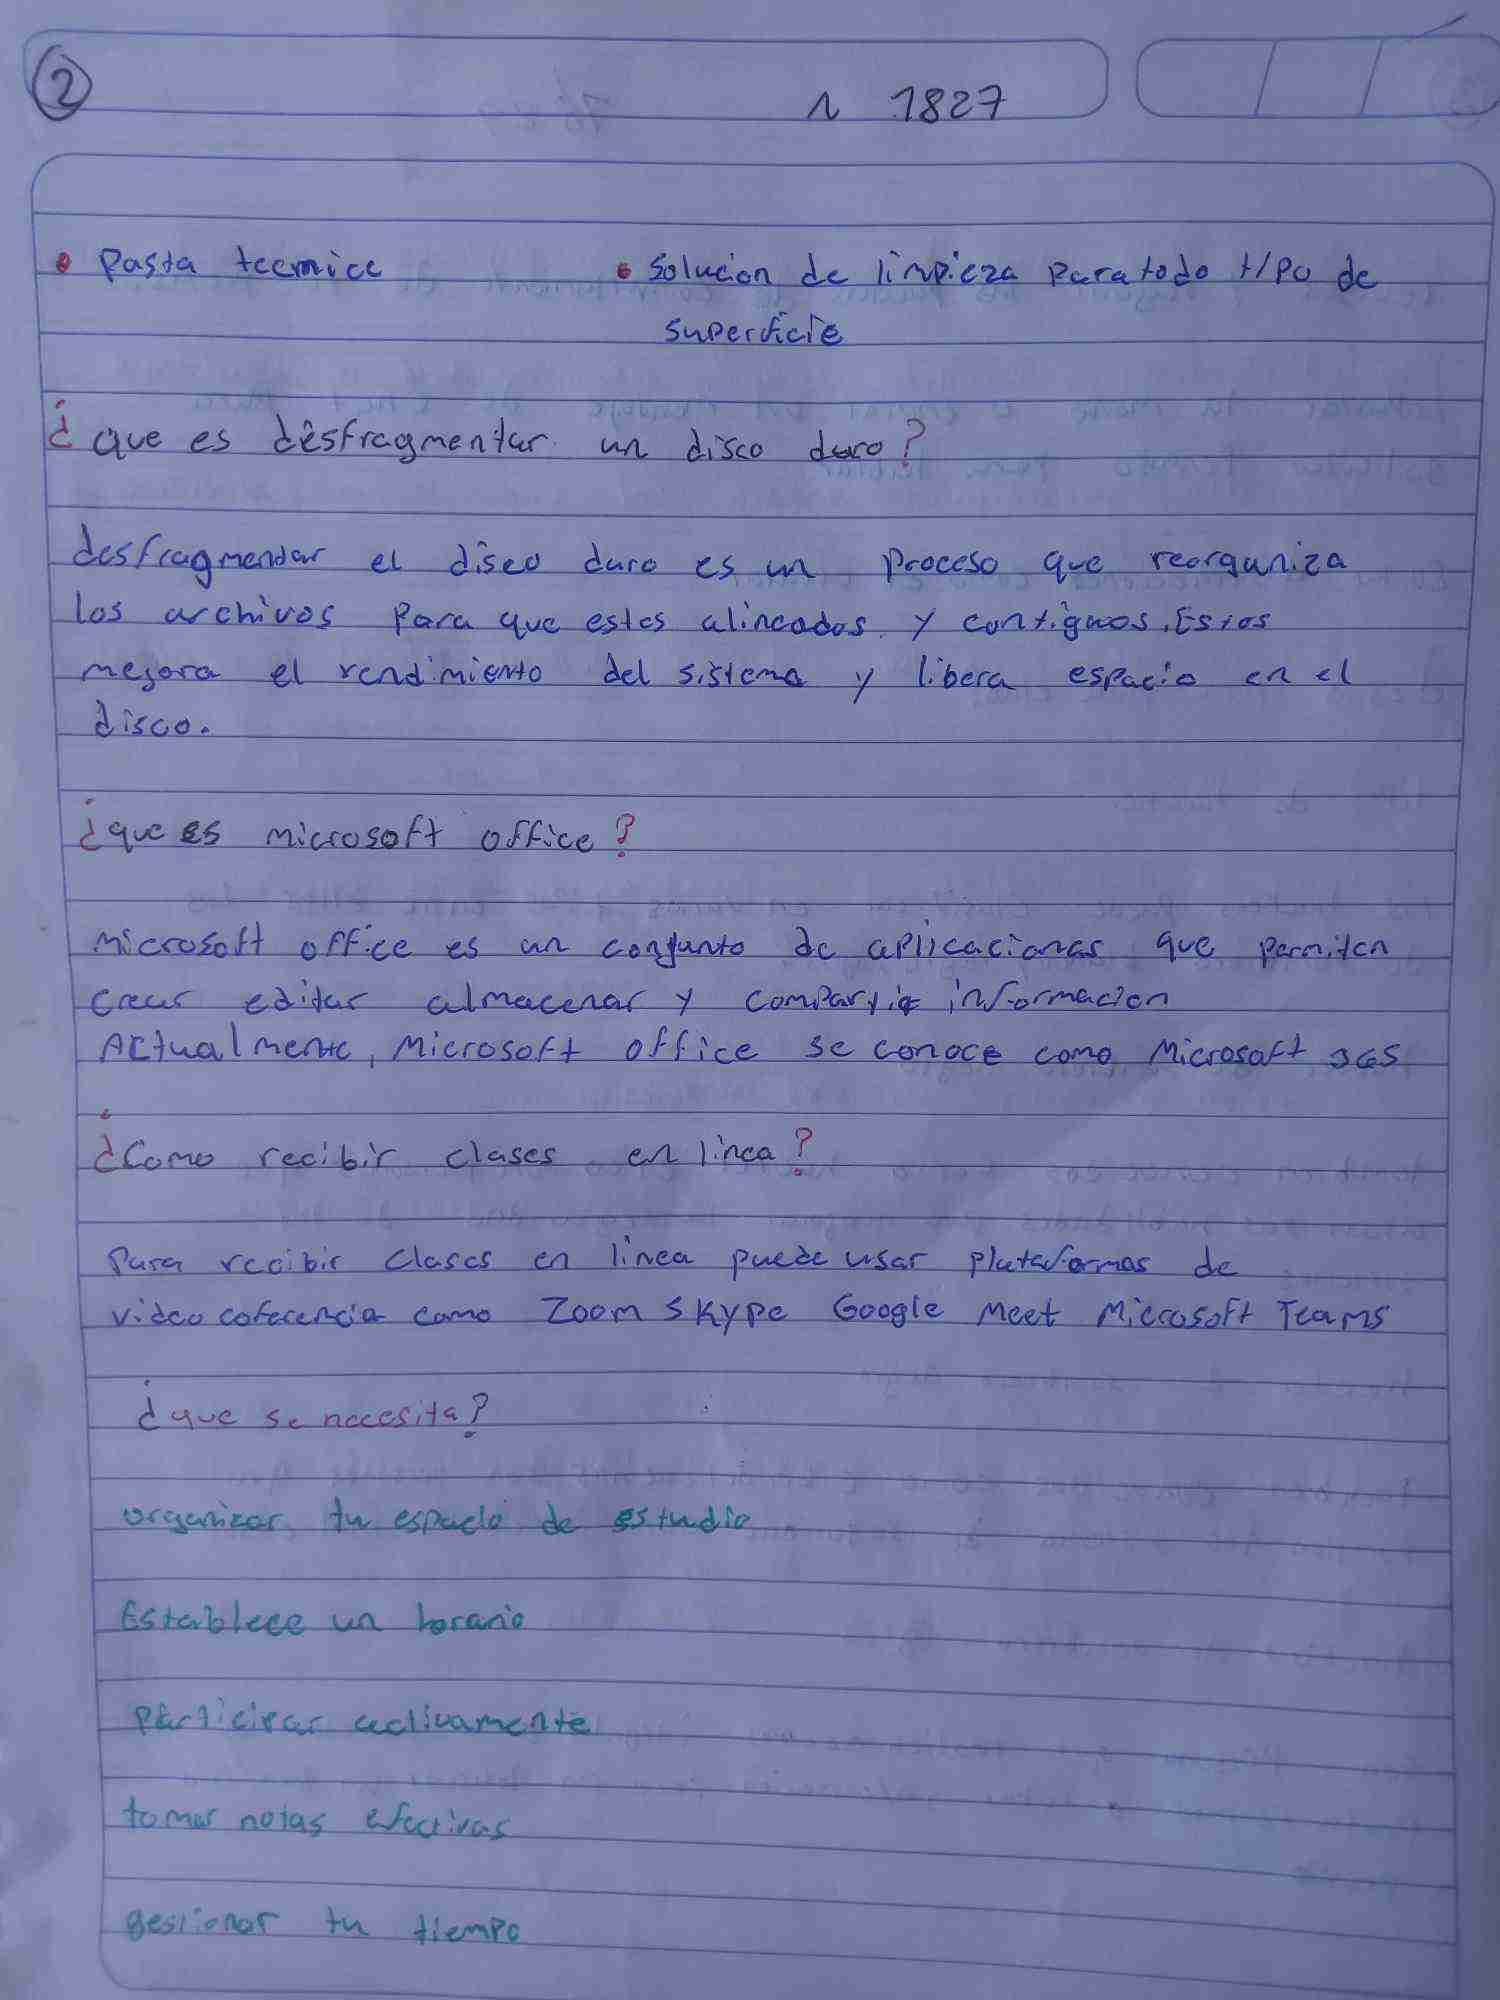 2
N 1827
• Pasta teermice • Solucion de limpieza para todo tipo de
superficie
¿que es desfragmentar un disco duro?
desfragmentar el disco duro es un proceso que reorganiza
los archivos para que estes alineados y contiguos. Estos
mejora el rendimiento del sistema y libera espacio en el
disco.
¿que es microsoft office?
Microsoft office es un conjunto de aplicaciones que permiten
crear editar almacenar y compartir informacion
Actualmente, Microsoft office se conoce como Microsoft 365
¿Como recibir clases en linea?
Para recibir clases en linea puede usar plataformas de
video coferencia como Zoom Skype Google Meet Microsoft Teams
¿que se necesita?
organizar tu espacio de estudio
Establece un horario
participar activamente
tomar notas efectivas
gestionar tu tiempo